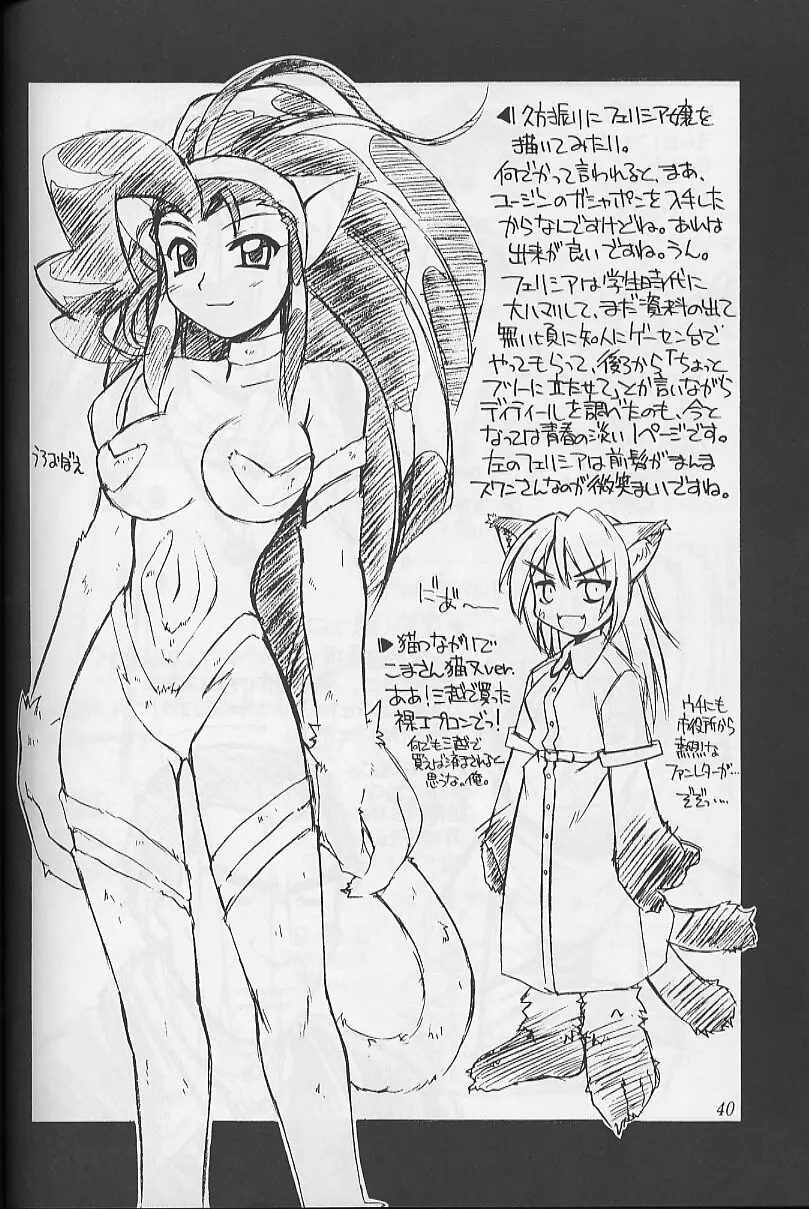 ◀久方振りにフェリシア嬢を
描いてみたり。
何でかって言われると、まあ、
ユージンのガシャポンを入手した
からなんですけどね。あれは
出来が良いですね。うん。
フェリシアは学生時代に
大ハマリして、まだ資料の出て
無い頃に知人にゲーセン台で
やってもらって、後ろから「ちょっと
ブリーに立たせて」とか言いながら
ディティールを調べたのも、今と
なっては青春の淡い1ページです。
左のフェリシアは前髪がまんま
スワンさんなのが微笑ましいですね。
うろおぼえ
にゃあ〜
▶猫つながりで
こまさん猫又ver.
ああ!三越で買った
裸エプロンでっ!
何でも三越で
買えば済まされると
思うな。俺。
ウチにも
市役所から
熱烈な
ファンレターが…
ぞぞっ…
40